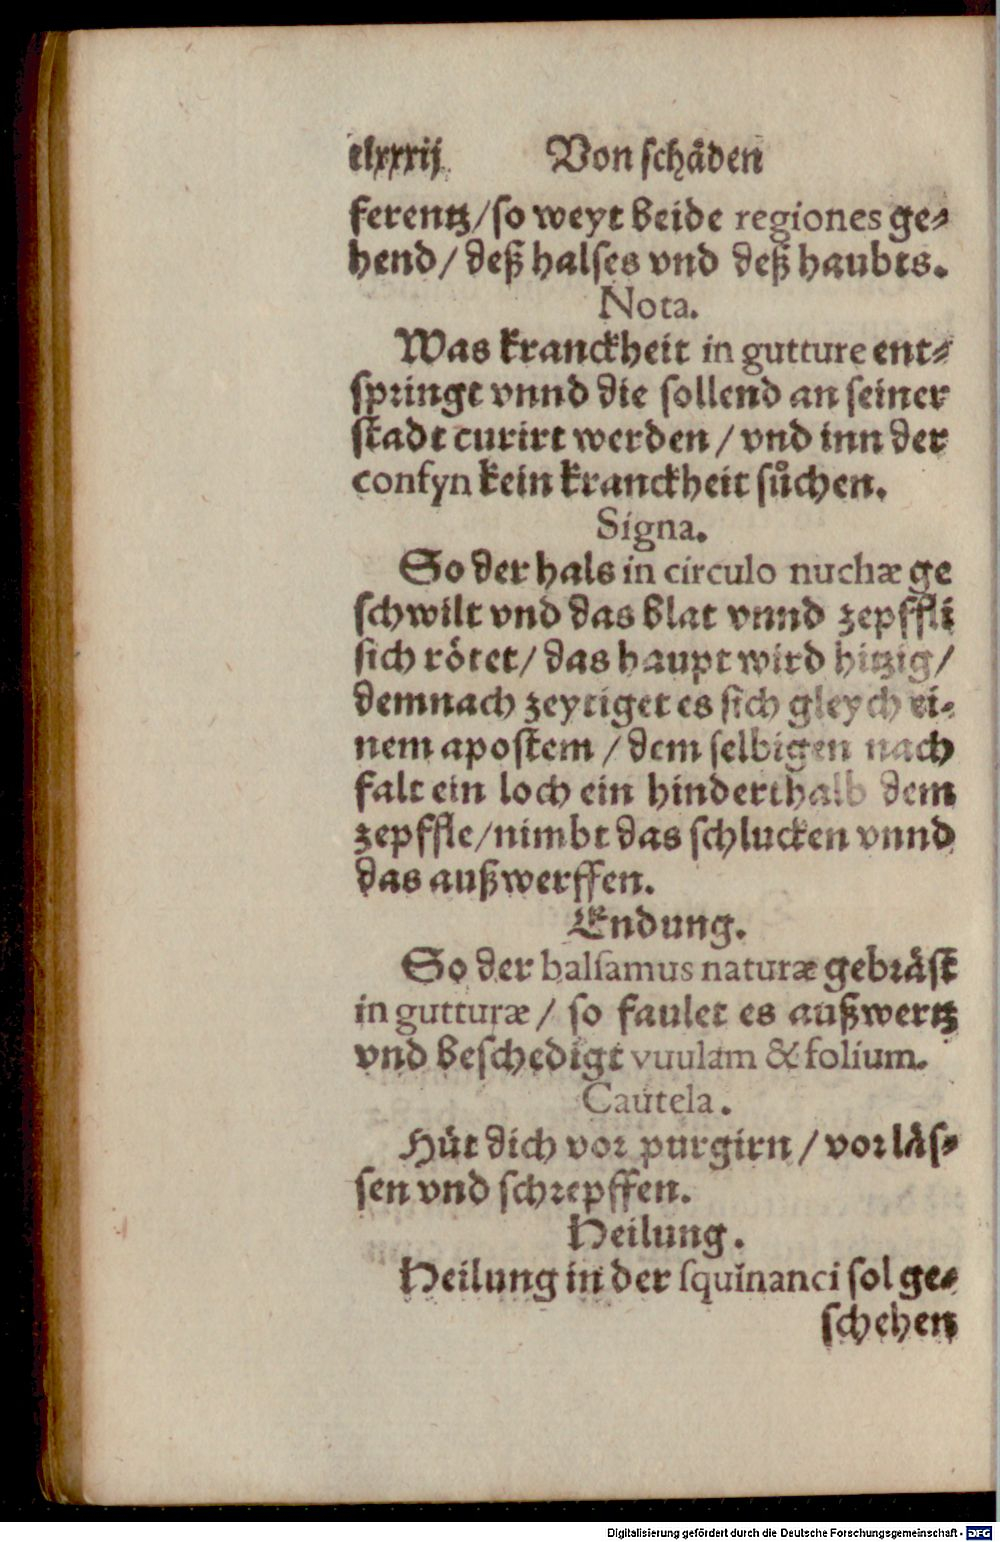 clxxxij Von schåden
ferentz/so weyt beide regiones ge⸗
hend/ deß halses vnd deß haubts.
Nota.
Was kranckheit in gutture ent⸗
springt vnnd die sollend an seiner
stadt curirt werden/ vnd inn der
confyn kein kranckheit sůchen.
Signa.
So der hals in circulo nuchæ ge
schwilt vnd das blat vnnd zepffli
sich rötet/ das haupt wird hitzig/
demnach zeytiget es sich gleych ei⸗
nem apostem/ dem selbigen nach
falt ein loch ein hinderthalb dem
zepffle/nimbt das schlucken vnnd
das außwerffen.
Endung.
So der balsamus naturæ gebråst
in gutturæ/ so faulet es außwertz
vnd beschedigt vuulam & folium.
Cautela.
Hüt dich vor purgirn/ vor lås⸗
sen vnd schrepffen.
Heilung.
Heilung in der squinanci sol ge⸗
schehen
Digitalisierung gefördert durch die Deutsche Forschungsgemeinschaft - DFG